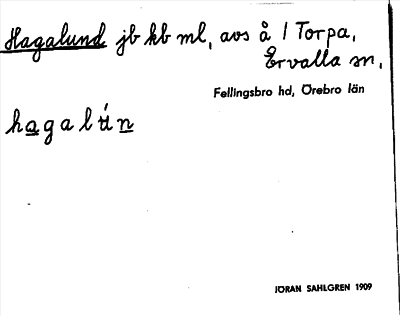 Hagalund jb kb ml, avs å 1 Torpa,
Ervalla sn,
Fellingsbro hd, Örebro län
hagalún
JÖRAN SAHLGREN 1909